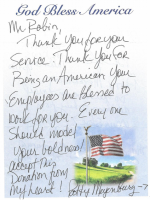 God Bless America
Mr. Robin,
Thank you for your
Service. Thank you For
Being an American. Your
Employees are blessed to
work for you. Everyone
should model
your boldness
accept this
Donation from
my heart!
Patty